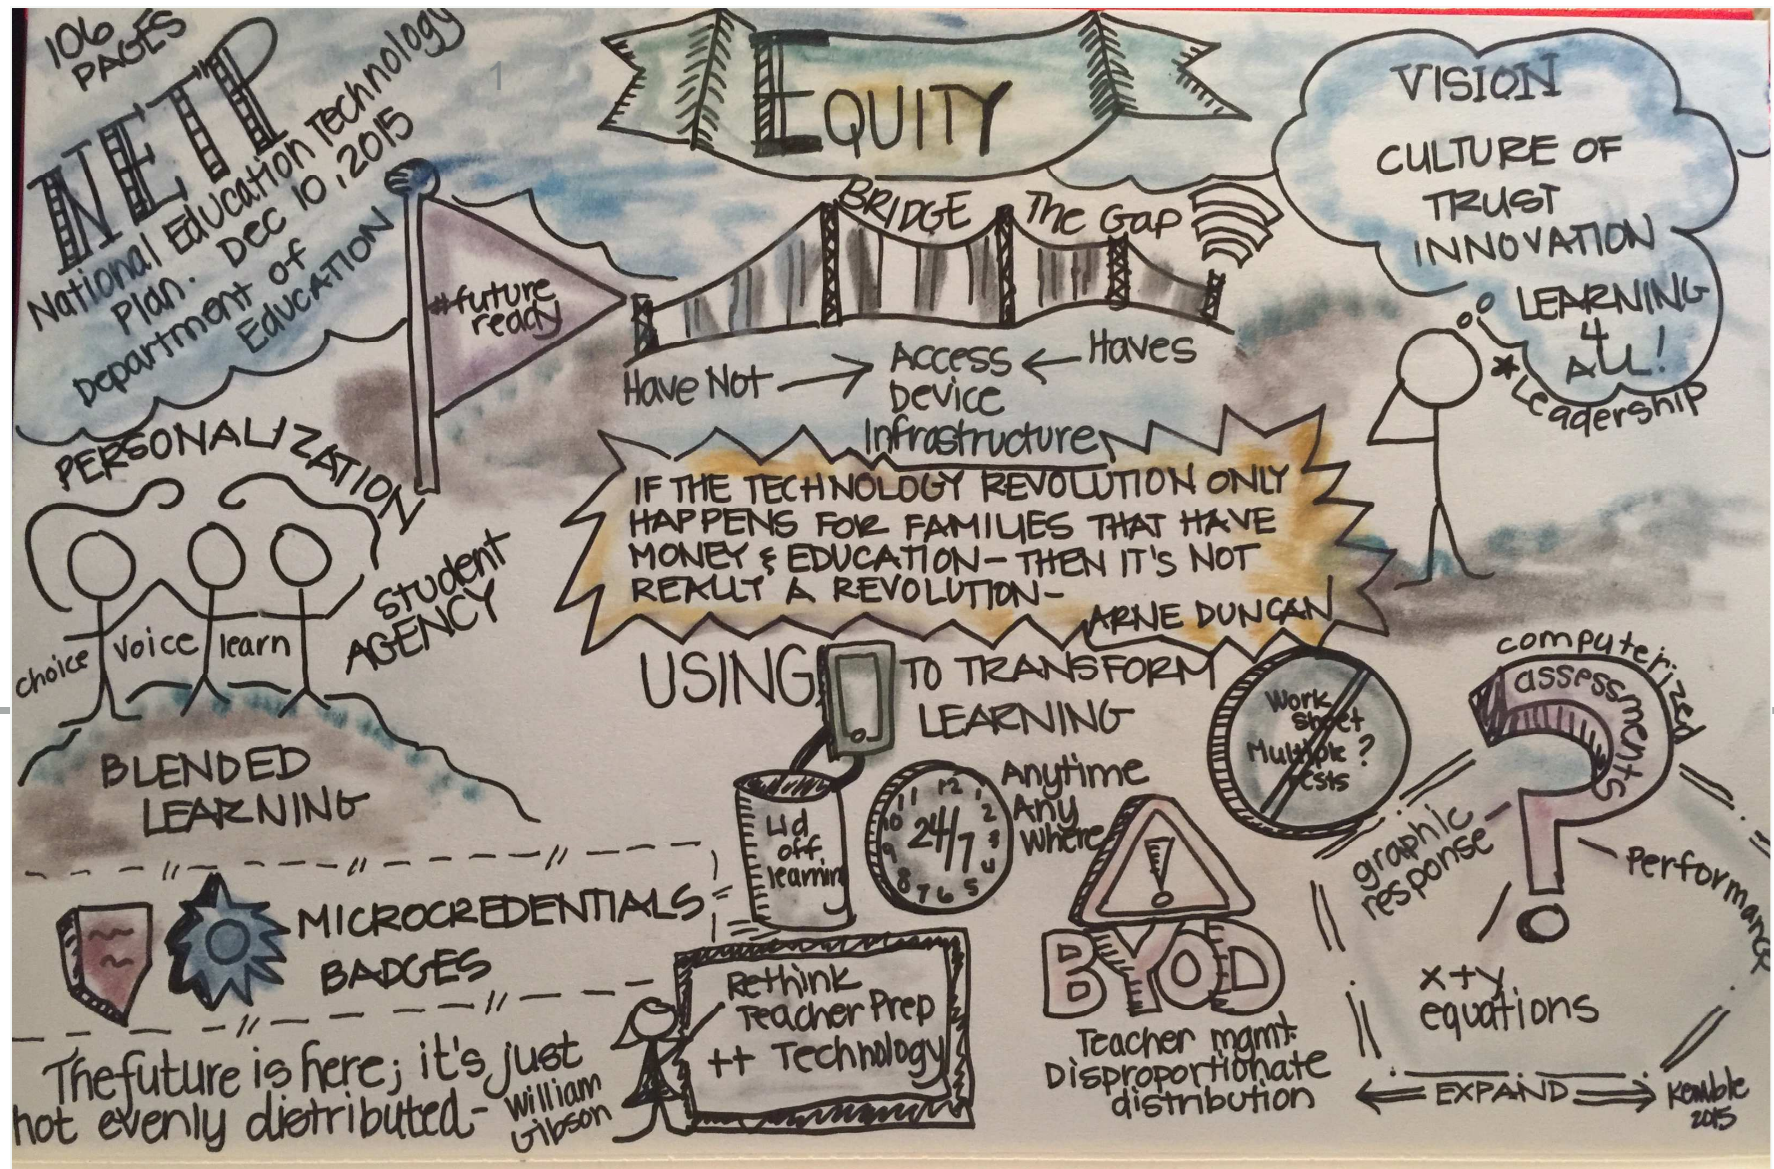 106
PAGES
NETP
National Education Technology
Plan. Dec 10, 2015
Department of
Education
1
EQUITY
BRIDGE The Gap
#future
ready
Have Not
Access
Device
Infrastructure
Haves
VISION
CULTURE OF
TRUST
INNOVATION
LEARNING
4
ALL!
*Leadership
PERSONALIZATION
STUDENT
AGENCY
choice
voice
learn
BLENDED
LEARNING
IF THE TECHNOLOGY REVOLUTION ONLY
HAPPENS FOR FAMILIES THAT HAVE
MONEY & EDUCATION - THEN IT'S NOT
REALLY A REVOLUTION-
ARNE DUNCAN
USING
TO TRANSFORM
LEARNING
Lid
off
learning
12
1
2
3
4
5
6
7
8
9
10
11
24/7
Anytime
Any
Where
Work
Sheet
Multiple ?
tests
computerized
assessments
graphic
response
Performance
x+y
equations
EXPAND
Kemble
2015
MICROCREDENTIALS
BADGES
Rethink
Teacher Prep
++ Technology
!
BYOD
Teacher mgmt.
Disproportionate
distribution
The future is here; it's just
not evenly distributed-
William
Gibson